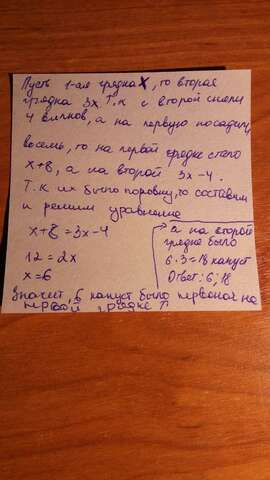 Пусть 1-ая грядка x, то вторая
грядка 3x. Т.к с второй сняли
4 а на первую посадили
восемь, то на первой грядке стало
x+8, а на второй 3x-4.
Т.к их было поровну, то составим
и решим уравнение
x+8=3x-4
12=2x
x=6
Значит, 6 капуст было первонач на
первой грядке ↑
а на второй
грядке было
6·3=18 капуст
Ответ: 6; 18